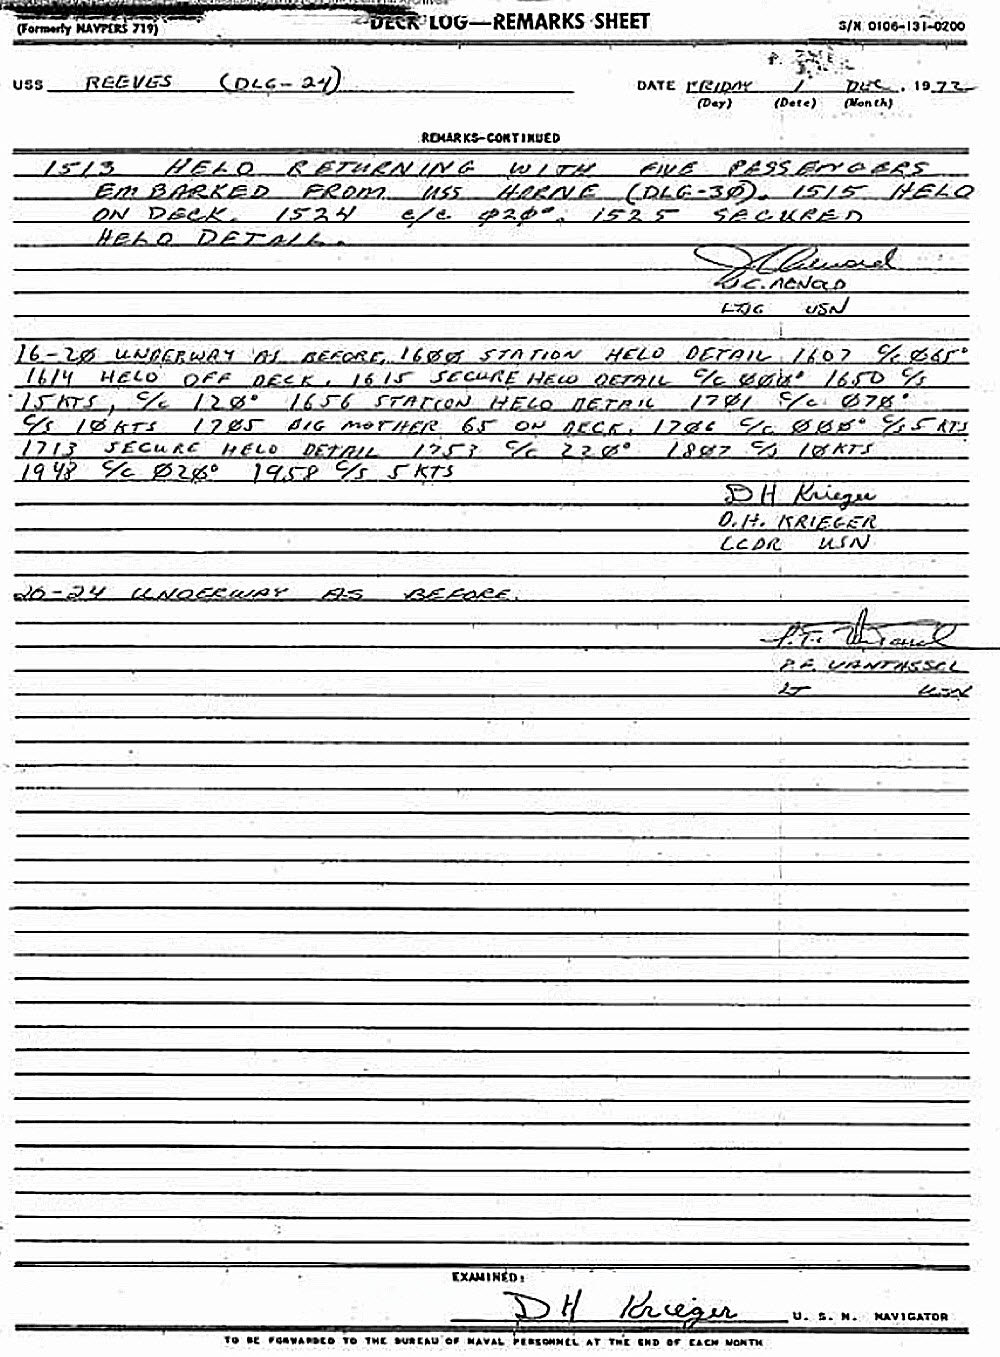 DECK LOG—REMARKS SHEET
(Formerly NAVPERS 719)
S/N 0106-131-0200
USS REEVES (DLG-24)
DATE FRIDAY 1 DEC, 1972
(Day) (Date) (Month)
REMARKS-CONTINUED
1513 HELO RETURNING WITH FIVE PASSENGERS
EMBARKED FROM USS HORNE (DLG-3Ø). 1515 HELO
ON DECK. 1524 C/C Ø2Ø°. 1525 SECURED
HELO DETAIL.
J.C. ARNOLD
LTJG USN
16-2Ø UNDERWAY AS BEFORE, 16ØØ STATION HELO DETAIL 16Ø7 C/C Ø65°
1614 HELO OFF DECK. 1615 SECURE HELO DETAIL C/C ØØØ° 165Ø C/S
15KTS, C/C 12Ø° 1656 STATION HELO DETAIL 17Ø1 C/C Ø7Ø°
C/S 1ØKTS 17Ø5 BIG MOTHER 65 ON DECK. 17Ø6 C/C ØØØ° C/S 5 KTS
1713 SECURE HELO DETAIL 1753 C/C 22Ø° 18Ø7 C/S 1ØKTS
1948 C/C Ø2Ø° 1958 C/S 5 KTS
D H Krieger
D.H. KRIEGER
LCDR USN
2Ø-24 UNDERWAY AS BEFORE.
VANTASSEL
LT USN
EXAMINED:
D H Krieger U. S. N. NAVIGATOR
TO BE FORWARDED TO THE BUREAU OF NAVAL PERSONNEL AT THE END OF EACH MONTH